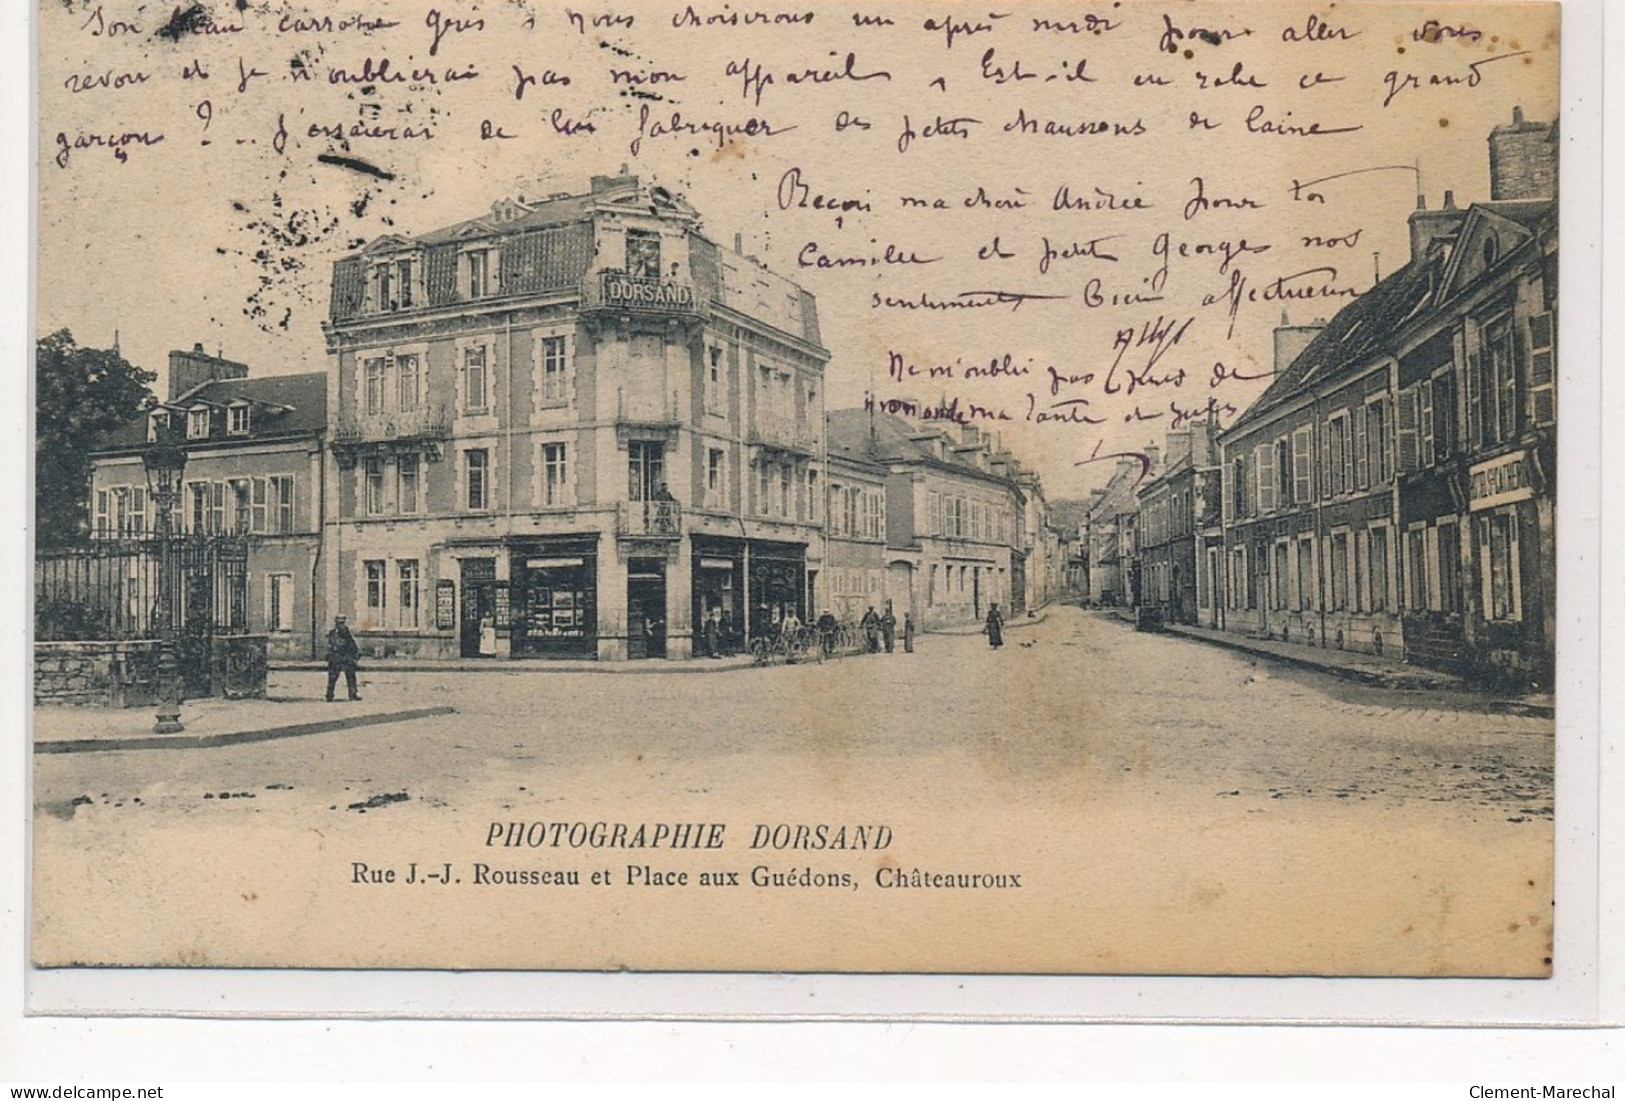 Son beau carrosse gris, nous choisirons un après midi pour aller vous
revoir et je n'oublierai pas mon appareil, Est-il en robe ce grand
garçon ? .. J'essaierai de lui fabriquer des petits chaussons de laine
Reçois ma chère Andrée pour toi
Camille et petit Georges nos
sentiments Bien affectueux
Ne m'oublie pas près de
ma tante et
DORSAND
PHOTOGRAPHIE DORSAND
Rue J.-J. Rousseau et Place aux Guédons, Châteauroux
delcampe.net
Clement-Marechal